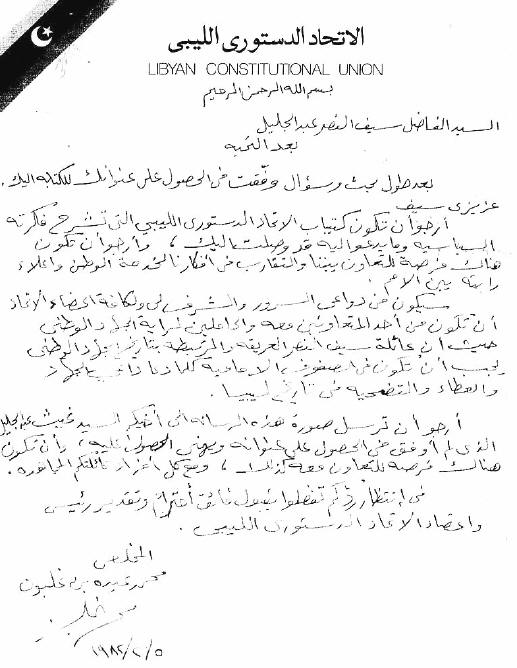 الاتحاد الدستورى الليبى
LIBYAN CONSTITUTIONAL UNION
بسم الله الرحمن الرحيم
السيد الفاضل سيف النصر عبد الجليل
بعد التحية
بعد طول بحث وسؤال وفقت فى الحصول على عنوانك للكتابة اليك.
عزيزى سيف
أرجو أن تكون كتيبات الاتحاد الدستورى الليبى التى تشرح فكرته
السياسيه وما يدعو اليه قد وصلت اليك ، وأرجو أن تكون
هناك فرصة للتعاون بيننا والتقارب فى أفكارنا لخدمة الوطن واعلاء
رايته بين الأمم.
سيكون من دواعى السرور والشرف لى ولكافة اعضاء الاتحاد
أن تكون من أحد المتعاونين معه والحاملين لراية الجهاد الوطنى
حيث أن عائلة سيف النصر العريقه والمرتبطة بتاريخ الجهاد الوطنى
يجب أن تكون فى الصفوف الأمامية كعادتها فى الجهاد
والعطاء والتضحية فى تاريخ ليبيا.
أرجو أن ترسل صورة هذه الرسالة الى أخيكم السيد غيث عبد الجليل
الذى لم أوفق فى الحصول على عنوانه ويهمنى الحصول عليه ، وأن تكون
هنالك فرصة للتعاون معه كذلك ، ومع كل أفراد عائلتكم المجاهده.
فى انتظار ردكم تفضلوا بقبول فائق احترامى وتقدير رئيس
واعضاء الاتحاد الدستورى الليبى.
المخلص
محمد عبده بن غلبون
١٩٨٢/٢/٥